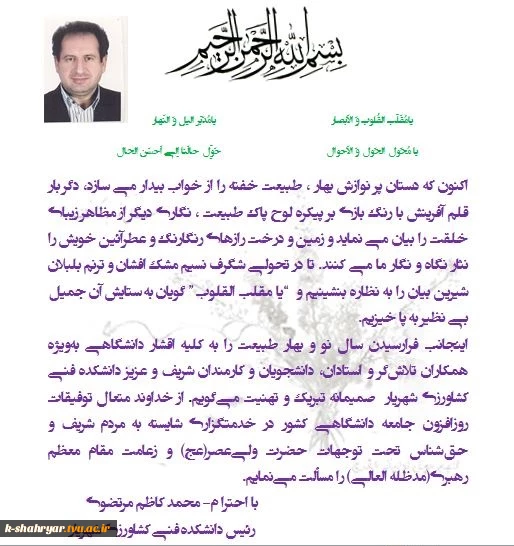 بسم الله الرحمن الرحیم
یامُقَلِّبَ القُلوبِ وَ الاَبصار یامُدَبِّرَ الیلِ وَ النَّهار
یا مُحَوِّلَ الحَولِ وَ الاَحوال حَوِّل حالَنا اِلی اَحسَنِ الحال
اکنون که دستان پر نوازش بهار ، طبیعت خفته را از خواب بیدار می سازد، دگر بار
قلم آفرینش با رنگ بازی بر پیکره لوح پاک طبیعت ، نگاری دیگر از مظاهر زیبای
خلقت را بیان می نماید و زمین و درخت رازهای رنگارنگ و عطرآئین خویش را
نثار نگاه و نگار ما می کنند. تا در تحولی شگرف نسیم مشک افشان و ترنم بلبلان
شیرین بیان را به نظاره بنشینیم و "یا مقلب القلوب" گویان به ستایش آن جمیل
بی نظیر به پا خیزیم.
اینجانب فرارسیدن سال نو و بهار طبیعت را به کلیه اقشار دانشگاهی به‌ویژه
همکاران تلاش‌گر و استادان، دانشجویان و کارمندان شریف و عزیز دانشکده فنی
کشاورزی شهریار صمیمانه تبریک و تهنیت می‌گویم. از خداوند متعال توفیقات
روزافزون جامعه دانشگاهی کشور در خدمتگزاری شایسته به مردم شریف و
حق‌شناس تحت توجهات حضرت ولی‌عصر(عج) و زعامت مقام معظم
رهبری(مدظله العالی) را مسألت می‌نمایم.
با احترام- محمد کاظم مرتضوی
رئیس دانشکده فنی کشاورزی شهریار
k-shahryar.tvu.ac.ir